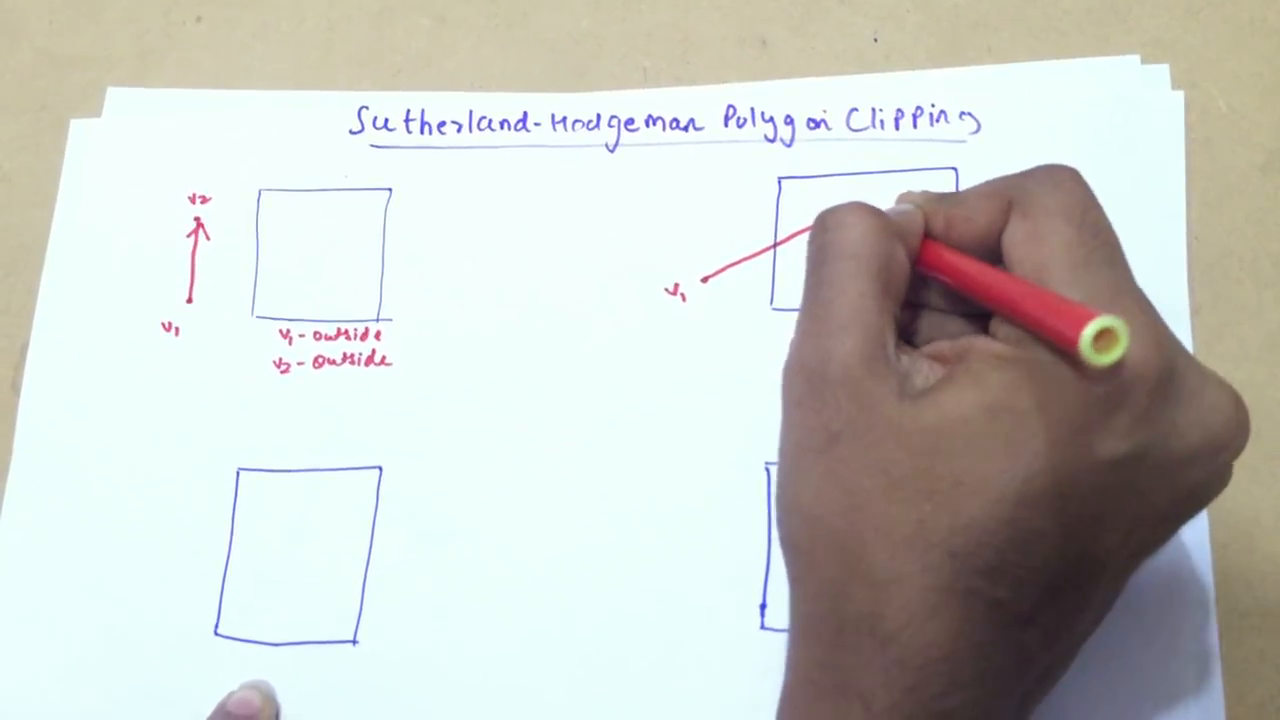 Sutherland-Hodgeman Polygon Clipping
v2
v1
v1-outside
v2-outside
v1